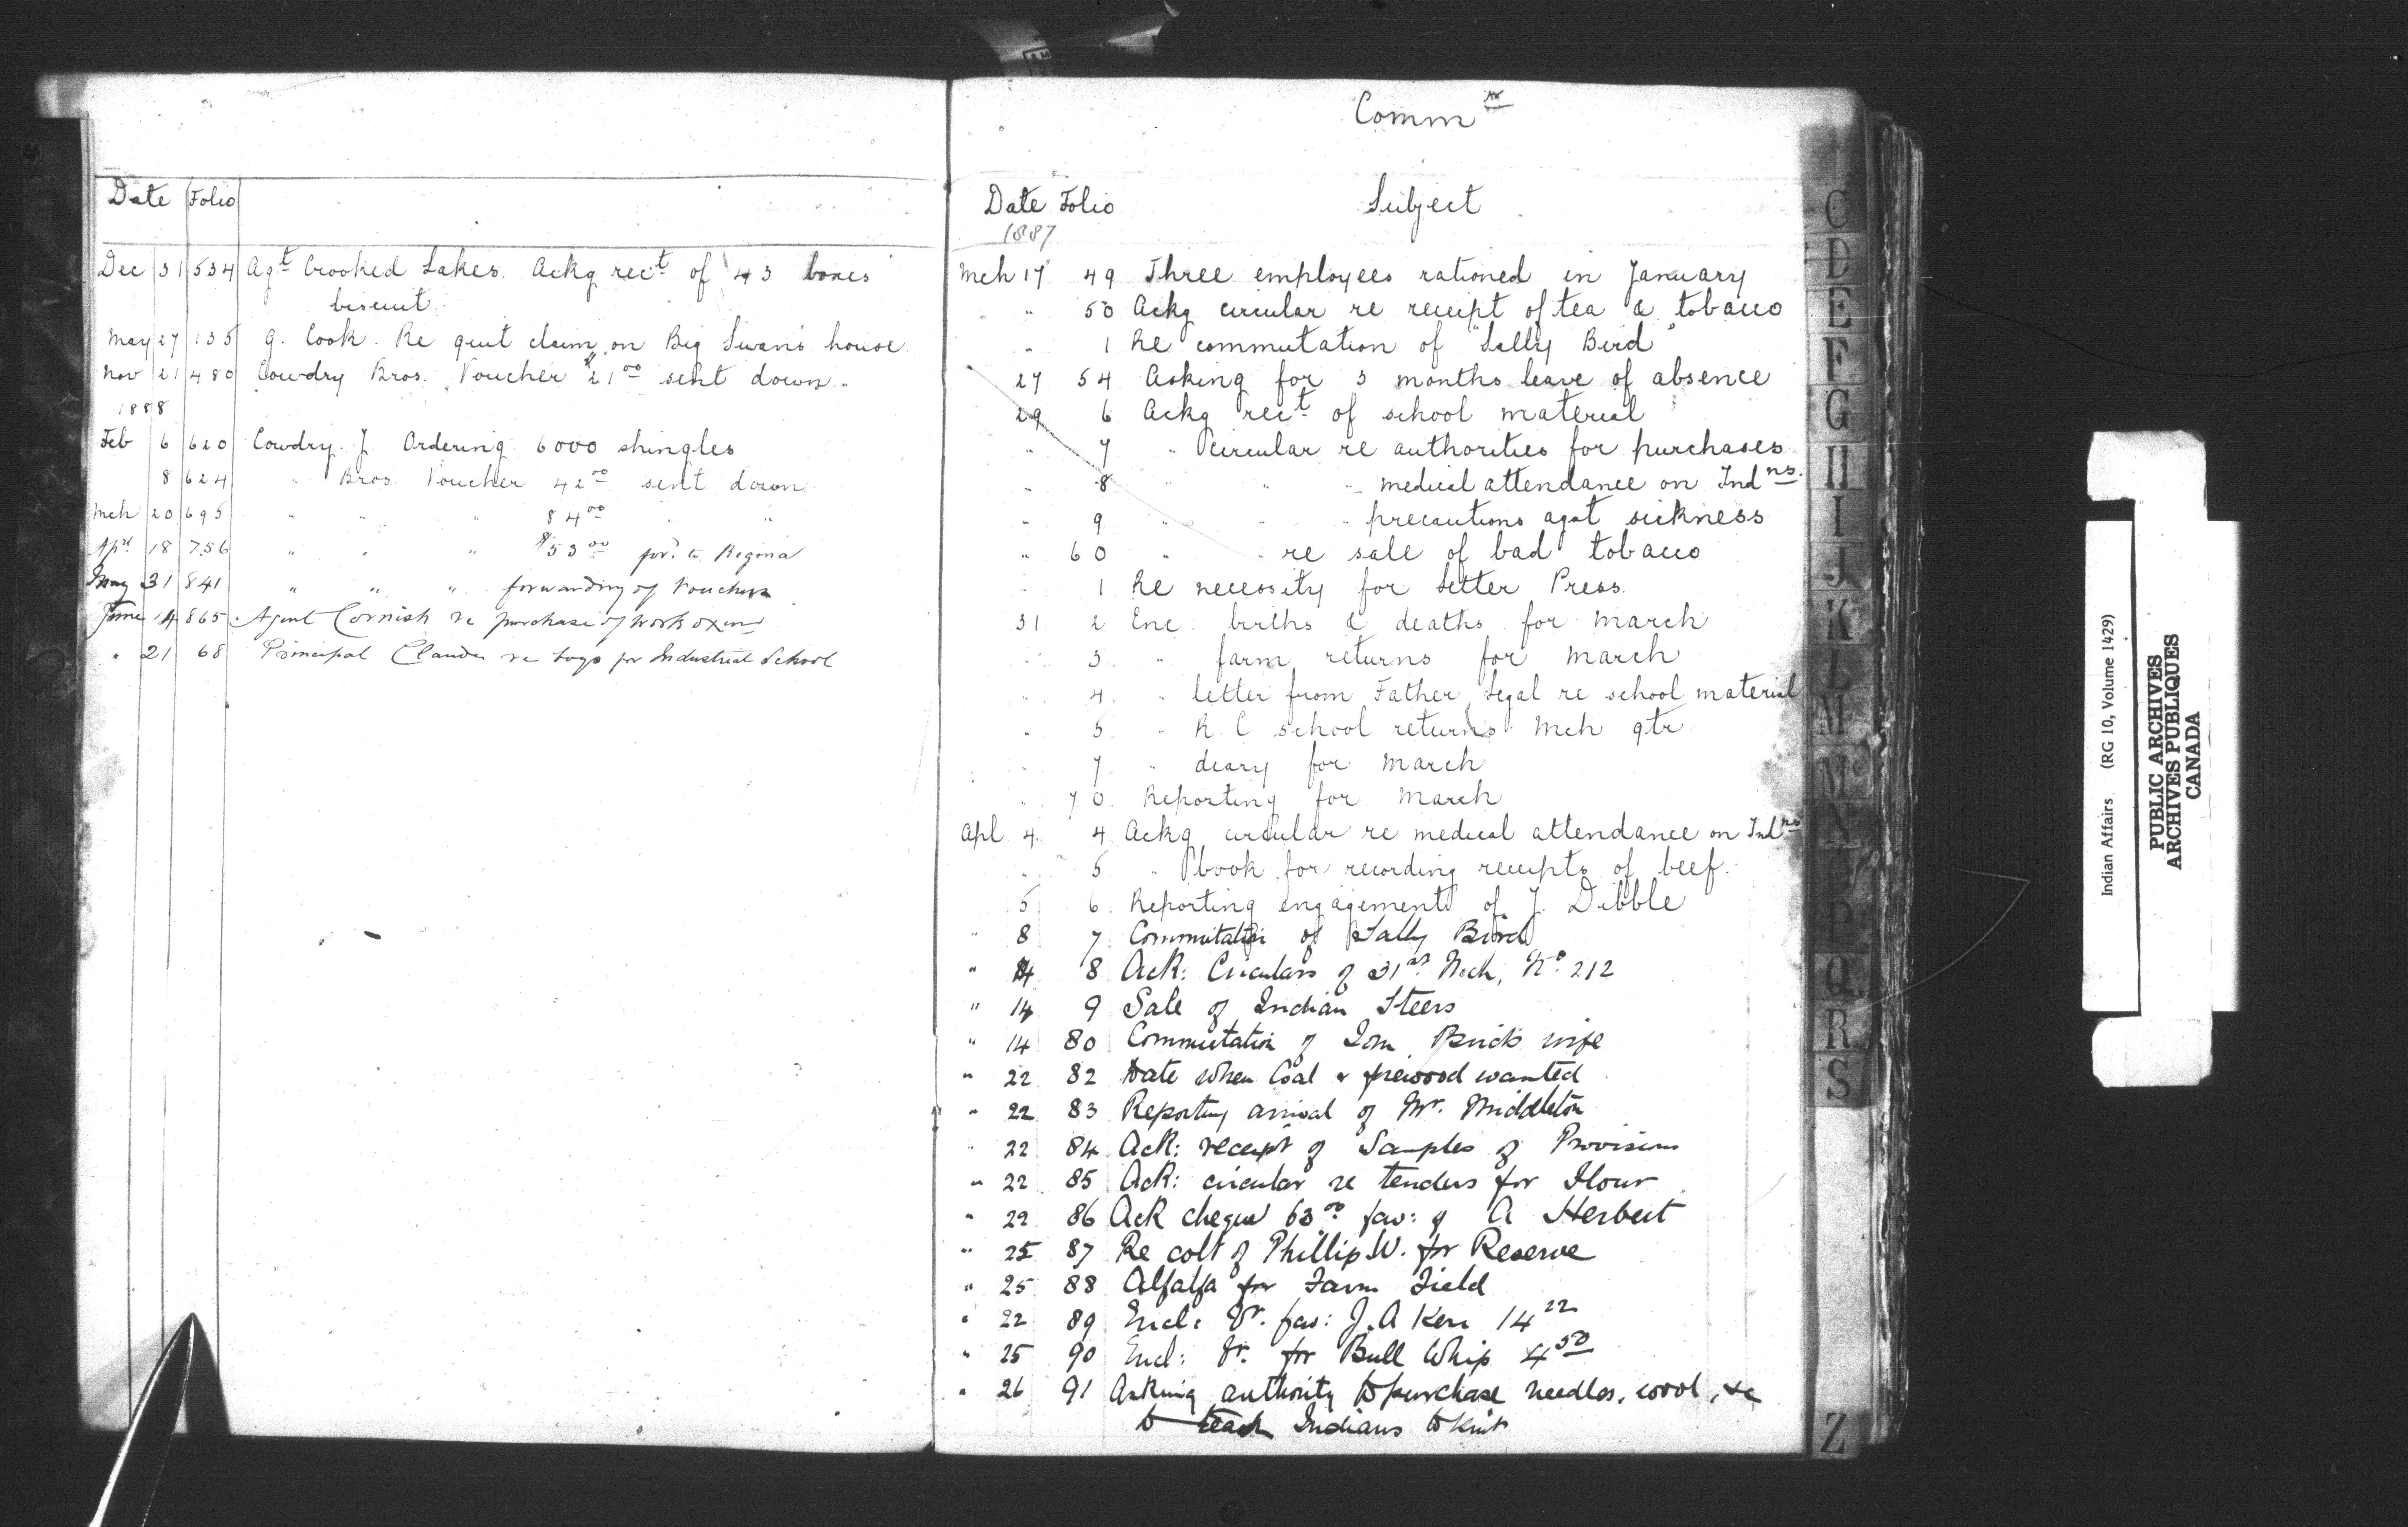 Date Folio
Dec 31 534 Agt Crooked Lakes. Ackg rect of 43 boxes
biscuit.
May 27 135 G. Cook. Re quit claim on Big Swan's house
Nov 21 480 Cowdry Bros. Voucher $21 00 sent down.
1888
Feb 6 620 Cowdry J. Ordering 6000 shingles
8 624 " Bros. Voucher 42 00 sent down
Mch 20 695 " " " 84 00 " "
Apl 18 756 " " " $53 00 for'd to Regina
May 31 841 " " " forwarding of Vouchers
June 14 865 Agent Cornish re purchase of work oxen
" 21 68 Principal re boys for Industrial School
Commr
Date Folio Subject
1887
Mch 17 49 Three employees rationed in January
" 50 Ackg circular re receipt of tea & tobacco
" 1 Re commutation of "Sally Bird"
27 54 Asking for 3 months leave of absence
29 6 Ackg rect of school material
" 7 " circular re authorities for purchases
" 8 " " " medical attendance on Indns.
" 9 " " " precautions agst sickness
" 60 " " re sale of bad tobacco
" 1 Re necessity for Letter Press.
31 2 Enc. births & deaths for March
" 3 " farm returns for March
" 4 " letter from Father Legal re school material
" 5 " R. C school returns Mch qtr
" 7 " diary for March
" 70 Reporting for March
Apl 4 4 Ackg circular re medical attendance on Indns
" 5 " book for recording receipts of beef.
5 6 Reporting engagement of J. Dibble
" 8 7 Commutation of Sally Bird
" 14 8 Ack: Circulars of 31st Mch, No 212
" 14 9 Sale of Indian Steers
" 14 80 Commutation of Tom Bird's wife
" 22 82 Date when Coal & firewood wanted
" 22 83 Reporting arrival of Mr. Middleton
" 22 84 Ack: receipt of Samples of Provisions
" 22 85 Ack: circular re tenders for Flour
" 22 86 Ack cheque 63 00 fav: of A Herbert
" 25 87 Re colt of Phillip W. for Reserve
" 25 88 Alfalfa for Farm Field
" 22 89 Encl: Vr. fav: J. A Kerr 14 22
" 25 90 Encl: Vr. for Bull Whip 4 50
" 26 91 Asking authority to purchase needles, wool, &c
to teach Indians to knit
C
D
E
F
G
H
I
J
K
L
M
Mc
N
O
P
Q
R
S
Z
Indian Affairs (RG 10, Volume 1429)
PUBLIC ARCHIVES
ARCHIVES PUBLIQUES
CANADA